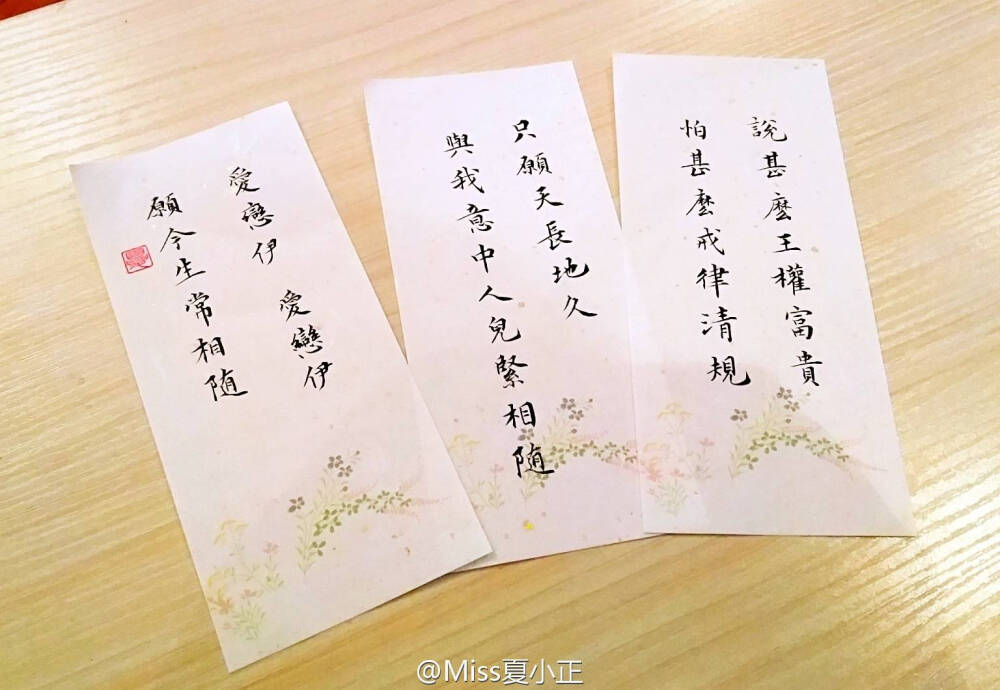 說甚麼王權富貴
怕甚麼戒律清規
只願天長地久
與我意中人兒緊相隨
愛戀伊
愛戀伊
願今生常相随
@Miss夏小正